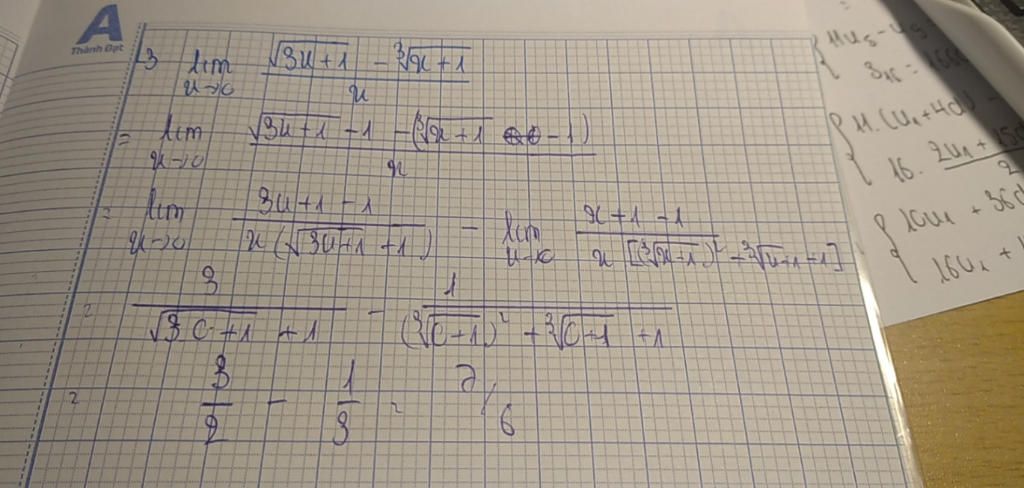 A
Thành Đạt
3 lim x→0 (√(3x+1) - ∛(x+1)) / x
= lim x→0 (√(3x+1) - 1 - (∛(x+1) - 1)) / x
= lim x→0 (3x+1-1) / (x(√(3x+1) + 1)) - lim x→0 (x+1-1) / (x[(∛(x+1))² + ∛(x+1) + 1])
= 3 / (√(3·0+1) + 1) - 1 / ((∛(0+1))² + ∛(0+1) + 1)
= 3/2 - 1/3 = 7/6
11u₅ -
11.(u₁+4d) -
16. 2u₁ + 15d
10u₁ + 36d
16u₁ +